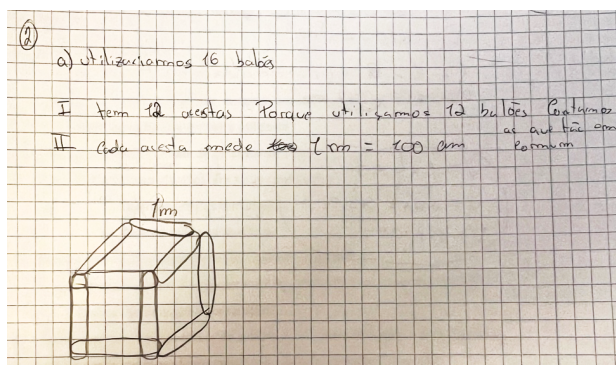 ②
a) utilizariamos 16 balões
I tem 12 arestas Porque utilizamos 12 balões Contamos
as que tão em
II Cada aresta mede 1m = 100 cm comum
1m